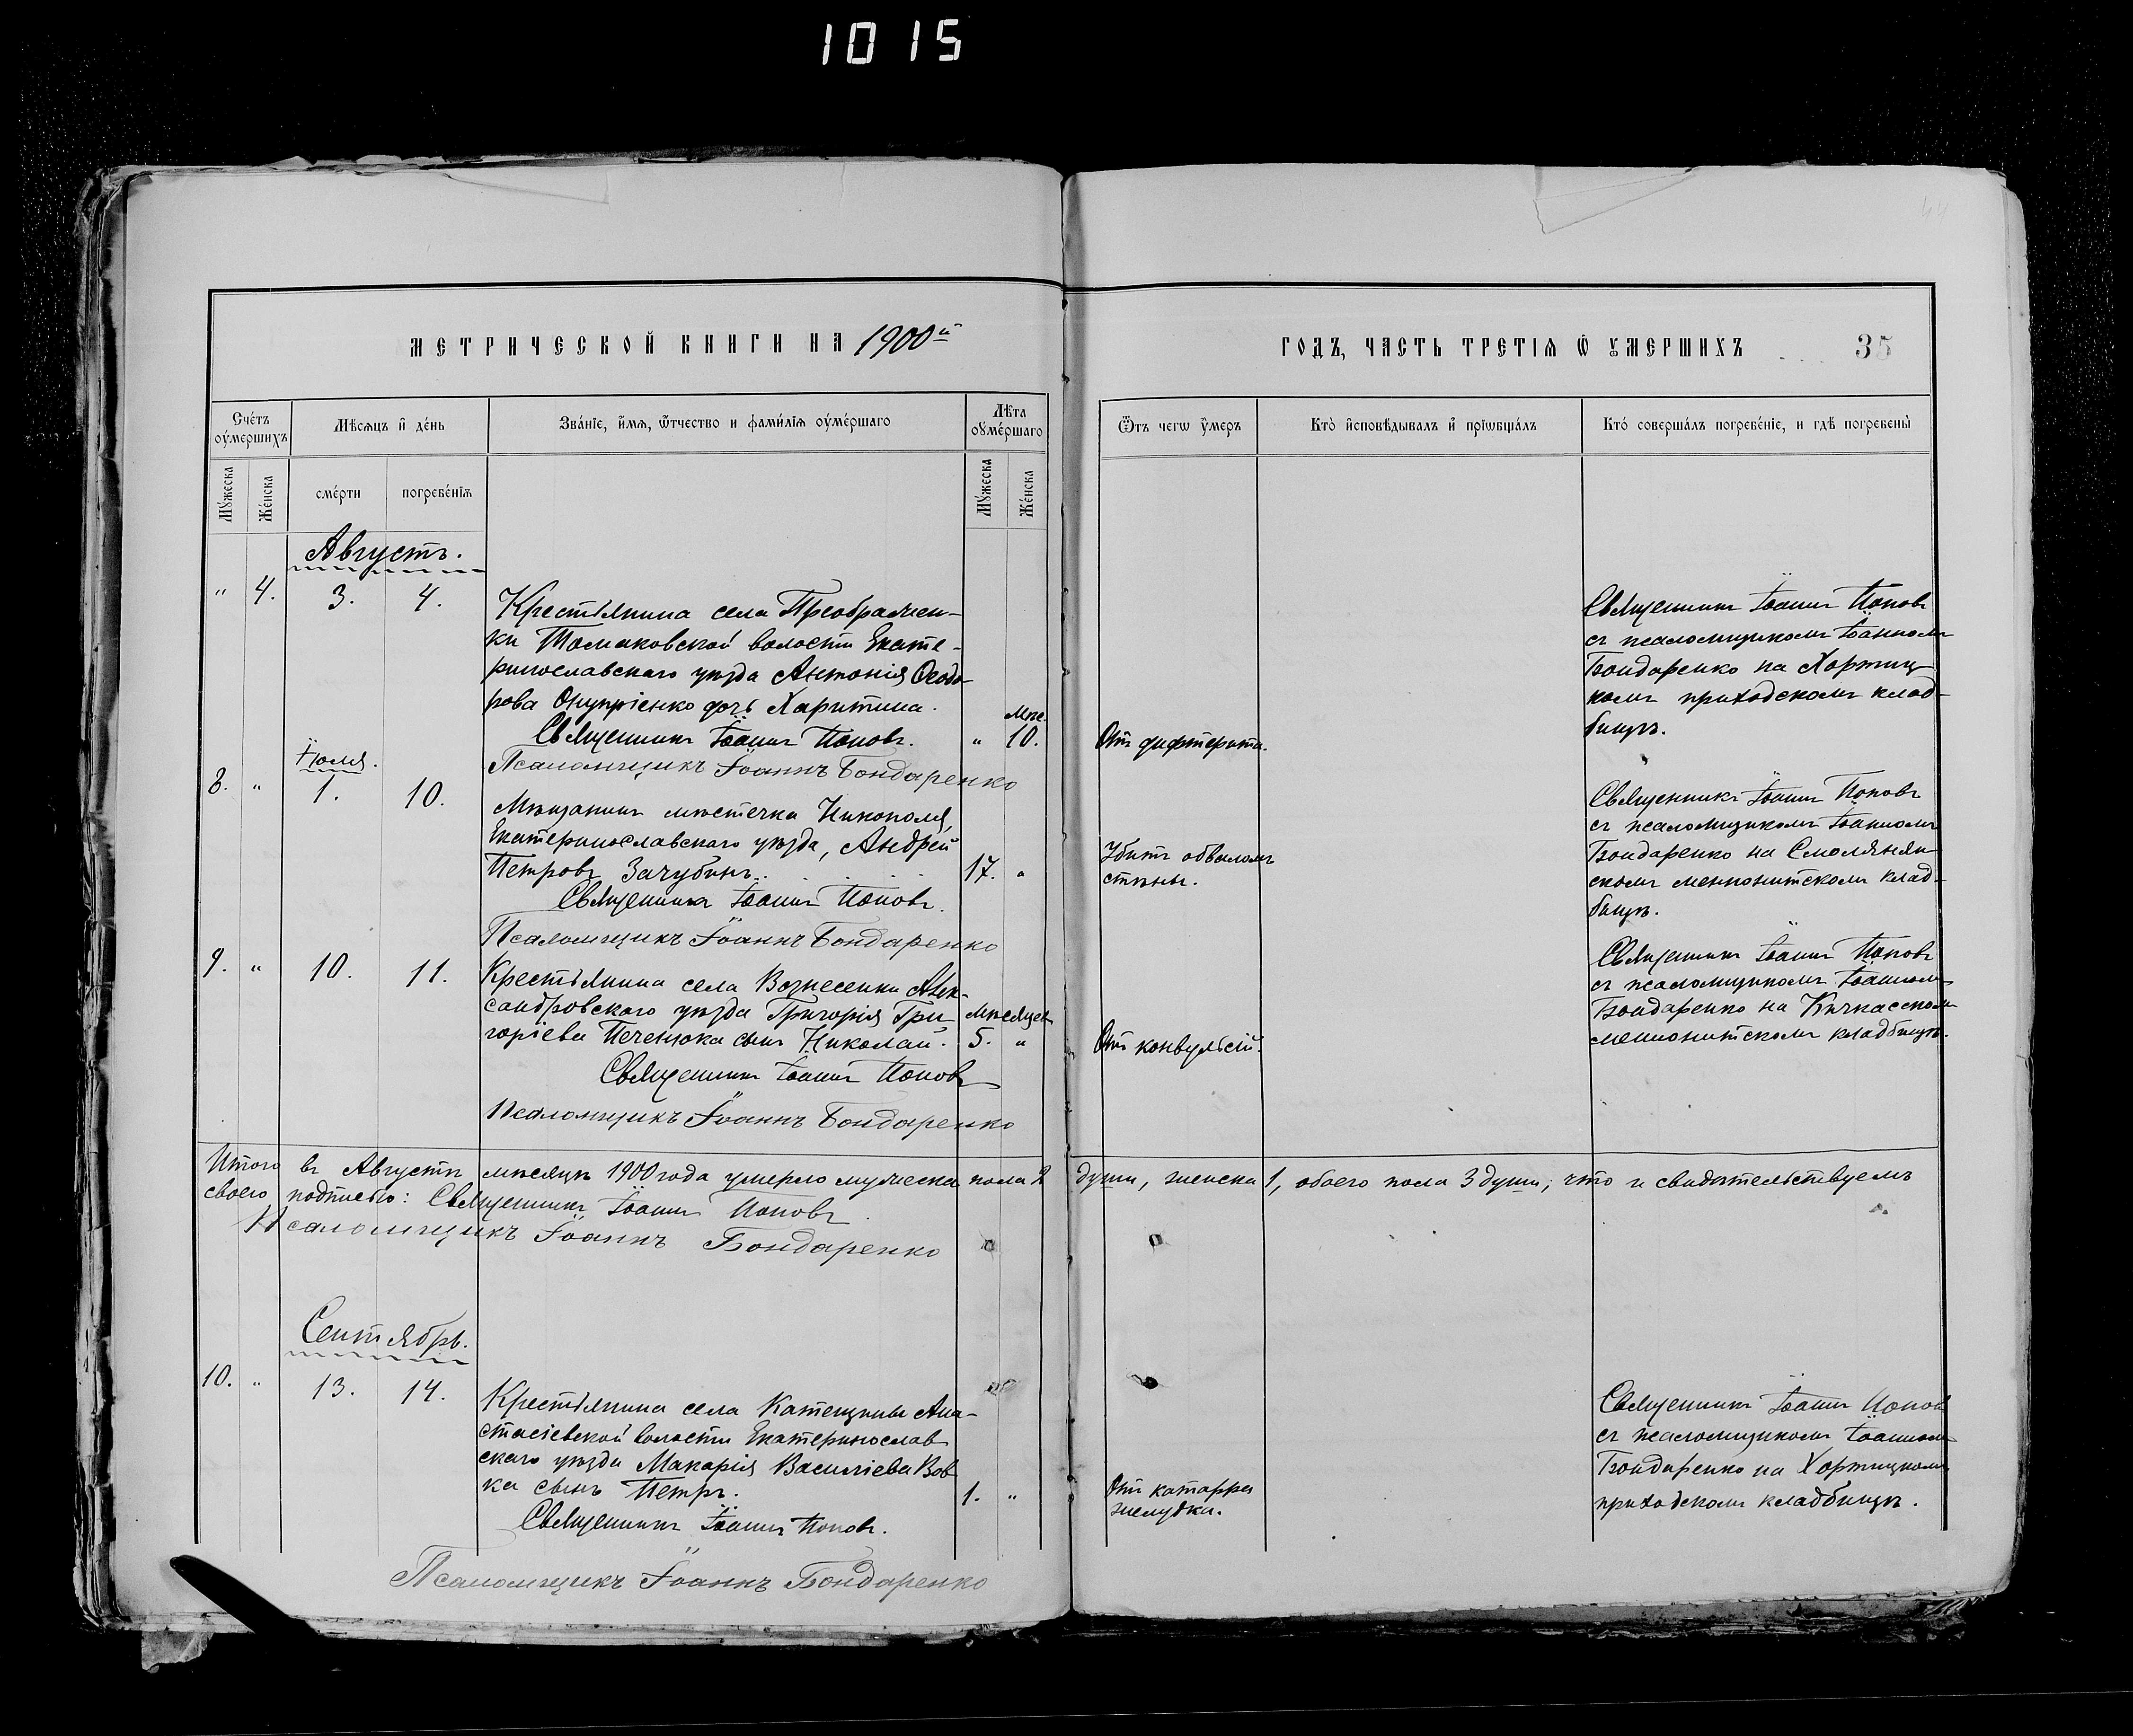 1015
МЕТРИЧЕСКОЙ КНИГИ НА 1900й
ГОДЪ, ЧАСТЬ ТРЕТІѦ Ѿ УМЕРШИХЪ 35
Сче́тъ оу҆ме́ршихъ
Мѣ́сѧцъ и҆ де́нь
Зва́нїе, и҆́мѧ, ѻ҆́тчество и фами́лїѧ оу҆ме́ршаго
Лѣ̑та оу҆ме́ршаго
Ѿ чегѡ̀ у҆́меръ
Кто̀ и҆сповѣ́дывалъ и҆ прїѡбща́лъ
Кто́ соверша́лъ погребе́нїе, и гдѣ̀ погребены̀
Му́жеска
Же́нска
сме́рти
погребе́нїѧ
Му́жеска
Же́нска
Августъ.
" 4. 3. 4.
Крестьянина села Преображен-
ки Томаковской волости Екате-
ринославскаго уѣзда Антонія Ѳеодо-
рова Онупріенко дочь Харитина.
Мѣс.
" 10.
Священникъ Іоаннъ Поповъ.
Псаломщикъ Іоаннъ Бондаренко
Отъ дифтерита.
Священникъ Іоаннъ Поповъ
съ псаломщикомъ Іоанномъ
Бондаренко на Хортиц-
комъ приходскомъ клад-
бищѣ.
Іюля.
8. " 1. 10.
Мѣщанинъ мѣстечка Никополя,
Екатеринославскаго уѣзда, Андрей
Петровъ Зачубинъ. 17. "
Священникъ Іоаннъ Поповъ.
Псаломщикъ Іоаннъ Бондаренко
Убитъ обваломъ
стѣны.
Священникъ Іоаннъ Поповъ
съ псаломщикомъ Іоанномъ
Бондаренко на Смолянян-
скомъ менонитскомъ клад-
бищѣ.
9. " 10. 11.
Крестьянина села Вознесенки Алек-
сандровскаго уѣзда Григорія Гри-
горіева Печенюка сынъ Николай.
мѣсяцев
5. "
Священникъ Іоаннъ Поповъ
Псаломщикъ Іоаннъ Бондаренко
Отъ конвульсій.
Священникъ Іоаннъ Поповъ
съ псаломщикомъ Іоанномъ
Бондаренко на Кичкасском
менонитскомъ кладбищѣ.
Итого въ Августѣ мѣсяцѣ 1900 года умерло мужеска пола 2 души, женска 1, обоего пола 3 души; что и свидѣтельствуемъ
своею подписью: Священникъ Іоаннъ Поповъ
Псаломщикъ Іоаннъ Бондаренко
Сентябрь.
10. " 13. 14.
Крестьянина села Катещины Ана-
стасіевской волости Екатеринослав-
скаго уѣзда Макарія Василіева Вов-
ка сынъ Петръ. 1. "
Священникъ Іоаннъ Поповъ.
Псаломщикъ Іоаннъ Бондаренко
Отъ катарра
желудка.
Священникъ Іоаннъ Попов
съ псаломщикомъ Іоанномъ
Бондаренко на Хортицкомъ
приходскомъ кладбищѣ.